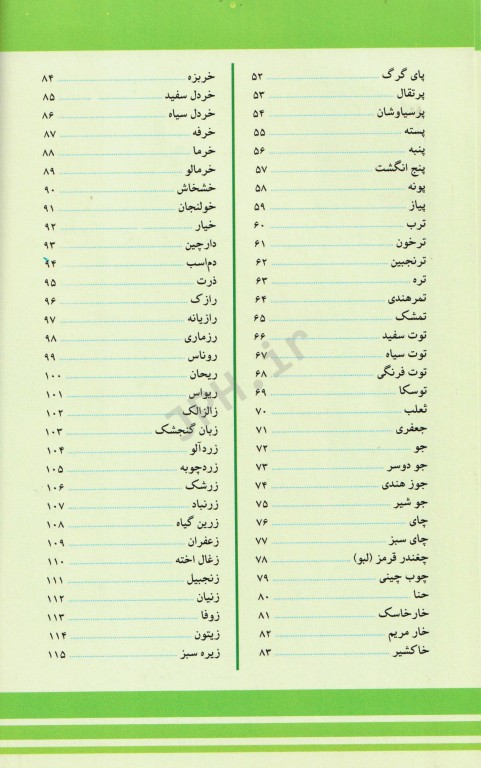 پای گرگ ۵۲
پرتقال ۵۳
پرسیاوشان ۵۴
پسته ۵۵
پنبه ۵۶
پنج انگشت ۵۷
پونه ۵۸
پیاز ۵۹
ترب ۶۰
ترخون ۶۱
ترنجبین ۶۲
تره ۶۳
تمرهندی ۶۴
تمشک ۶۵
توت سفید ۶۶
توت سیاه ۶۷
توت فرنگی ۶۸
توسکا ۶۹
ثعلب ۷۰
جعفری ۷۱
جو ۷۲
جو دوسر ۷۳
جوز هندی ۷۴
جو شیر ۷۵
چای ۷۶
چای سبز ۷۷
چغندر قرمز (لبو) ۷۸
چوب چینی ۷۹
حنا ۸۰
خارخاسک ۸۱
خار مریم ۸۲
خاکشیر ۸۳
خربزه ۸۴
خردل سفید ۸۵
خردل سیاه ۸۶
خرفه ۸۷
خرما ۸۸
خرمالو ۸۹
خشخاش ۹۰
خولنجان ۹۱
خیار ۹۲
دارچین ۹۳
دم‌اسب ۹۴
ذرت ۹۵
رازک ۹۶
رازیانه ۹۷
رزماری ۹۸
روناس ۹۹
ریحان ۱۰۰
ریواس ۱۰۱
زالزالک ۱۰۲
زبان گنجشک ۱۰۳
زردآلو ۱۰۴
زردچوبه ۱۰۵
زرشک ۱۰۶
زرنباد ۱۰۷
زرین گیاه ۱۰۸
زعفران ۱۰۹
زغال اخته ۱۱۰
زنجبیل ۱۱۱
زنیان ۱۱۲
زوفا ۱۱۳
زیتون ۱۱۴
زیره سبز ۱۱۵